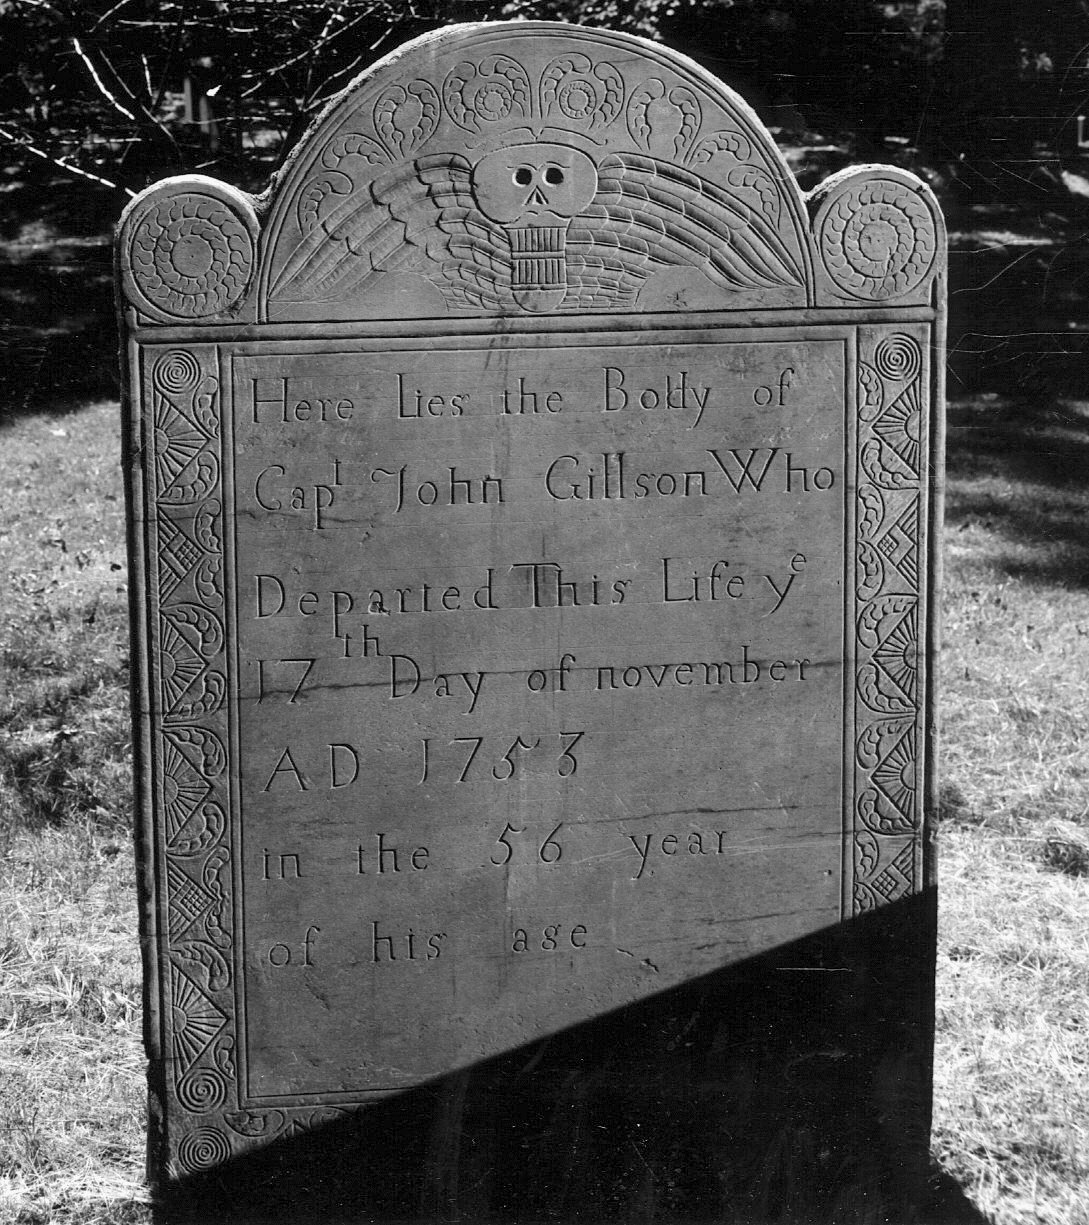 Here Lies the Body of
Capt John Gillson Who
Departed This Life ye
17th Day of november
AD 1753
in the 56 year
of his age